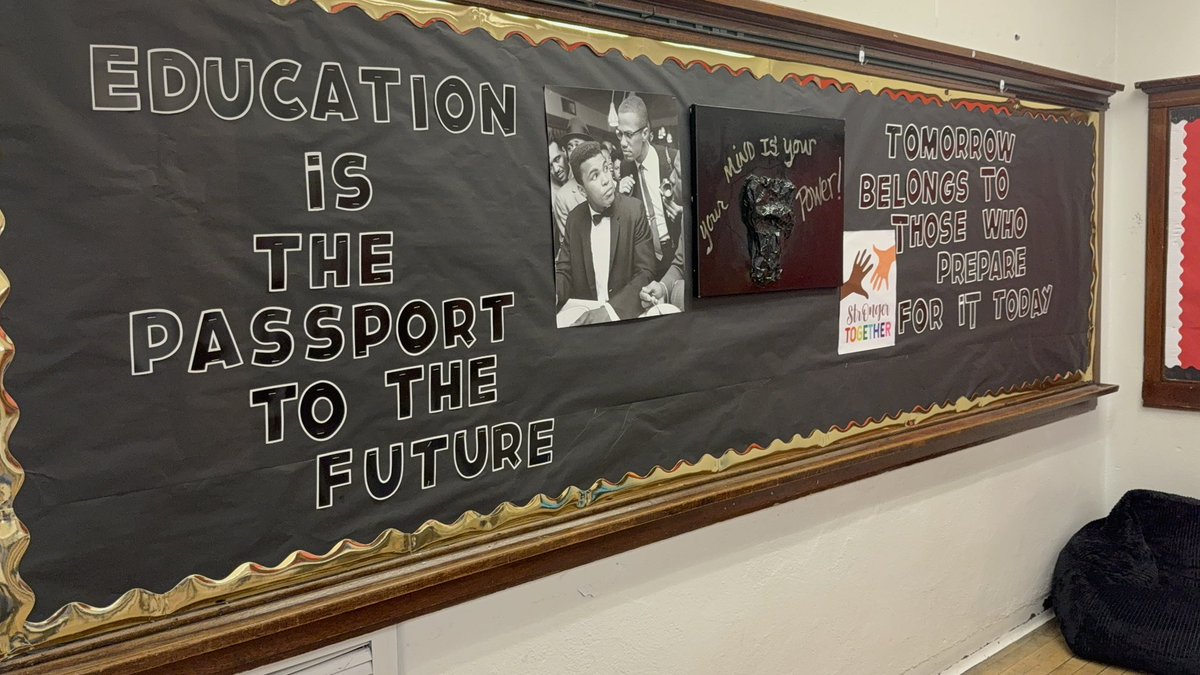 EDUCATION
iS
THE
PASSPORT
TO THE
FUTURE
your MiND IS your Power!
StrOnger
TOGETHER
TOMORROW
BELONGS TO
THOSE WHO
PREPARE
FOR iT TODAY